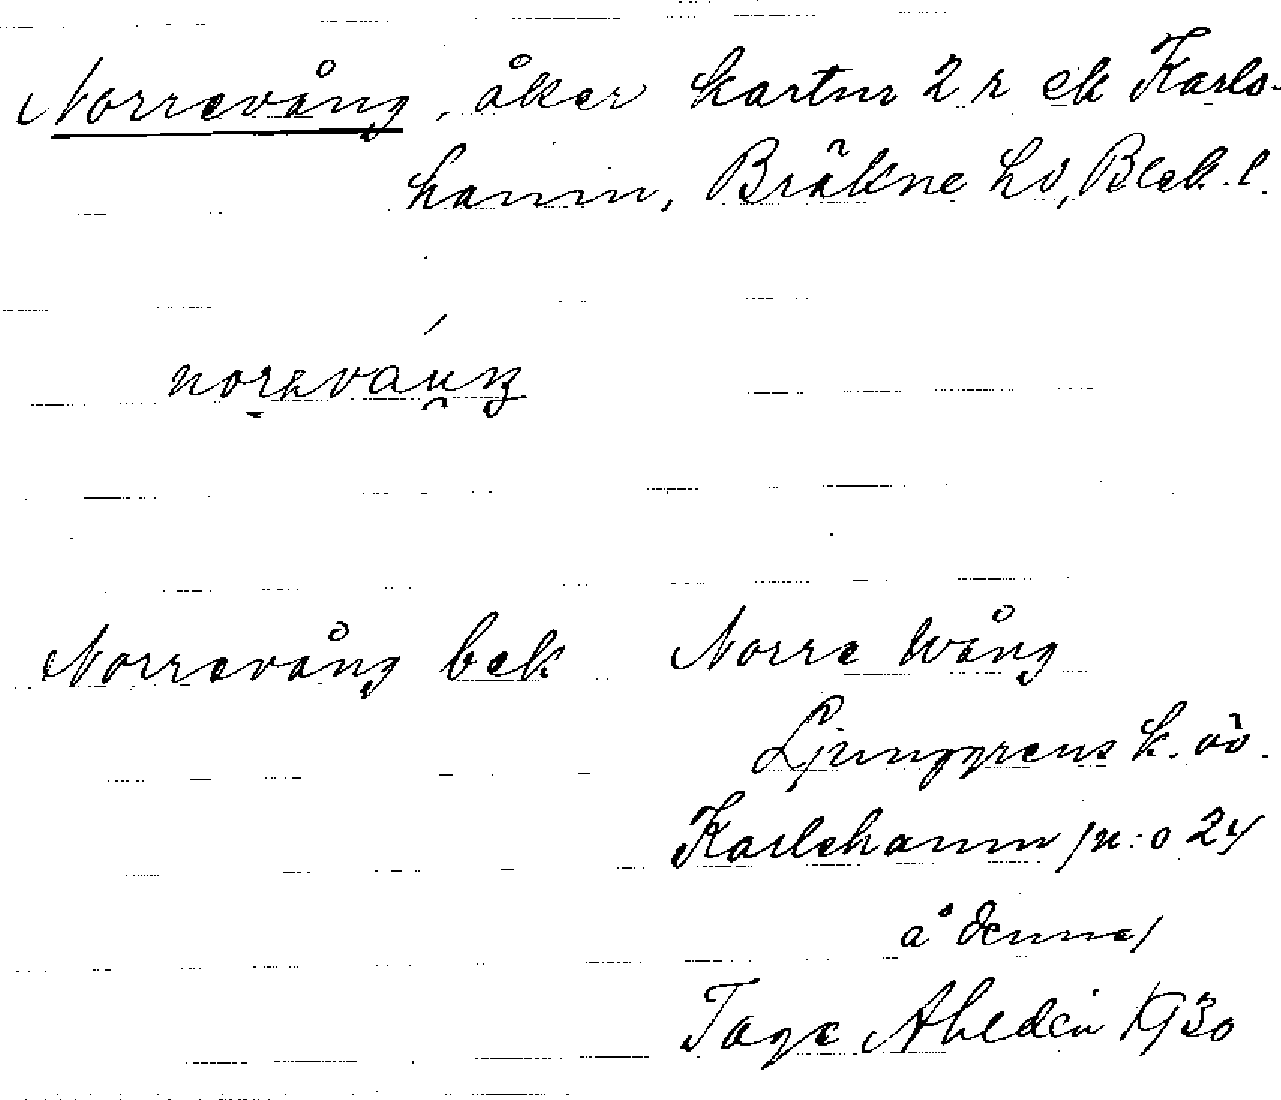 Norrevång, åker kartnr 2 r ek Karls-
hamn, Bräkne hd, Blek. l.
Norrevång bek Norre Wång
Ljunggrens k. öv.
Karlshamn /n:o 24
å denna/
Tage Ahldén 1930